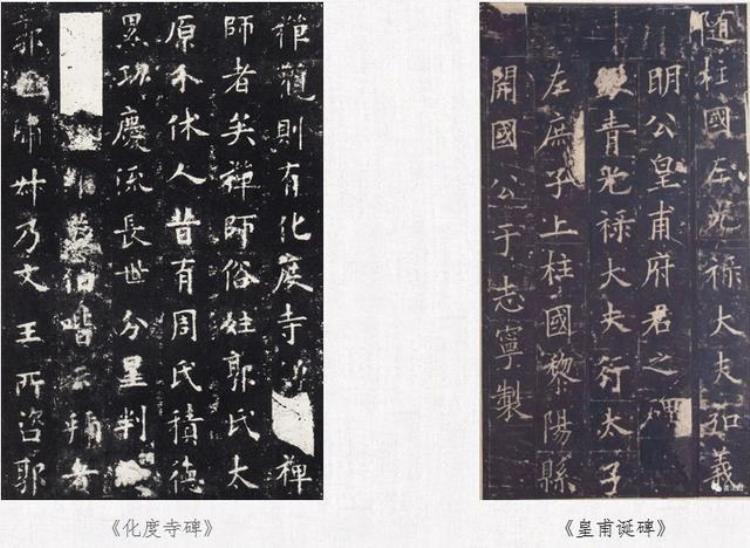 禅觀則有化度寺禅
師者矣禅師俗姓郭氏大
原介休人昔有周氏積德
累功慶流長世分星判
蔡伯喈云号者
郭也叔乃文王所咨郭
《化度寺碑》
随柱國左光禄大夫弘義
明公皇甫府君之碑
銀青光禄大夫行太子
左庶子上柱國黎陽縣
開國公于志寧製
《皇甫诞碑》